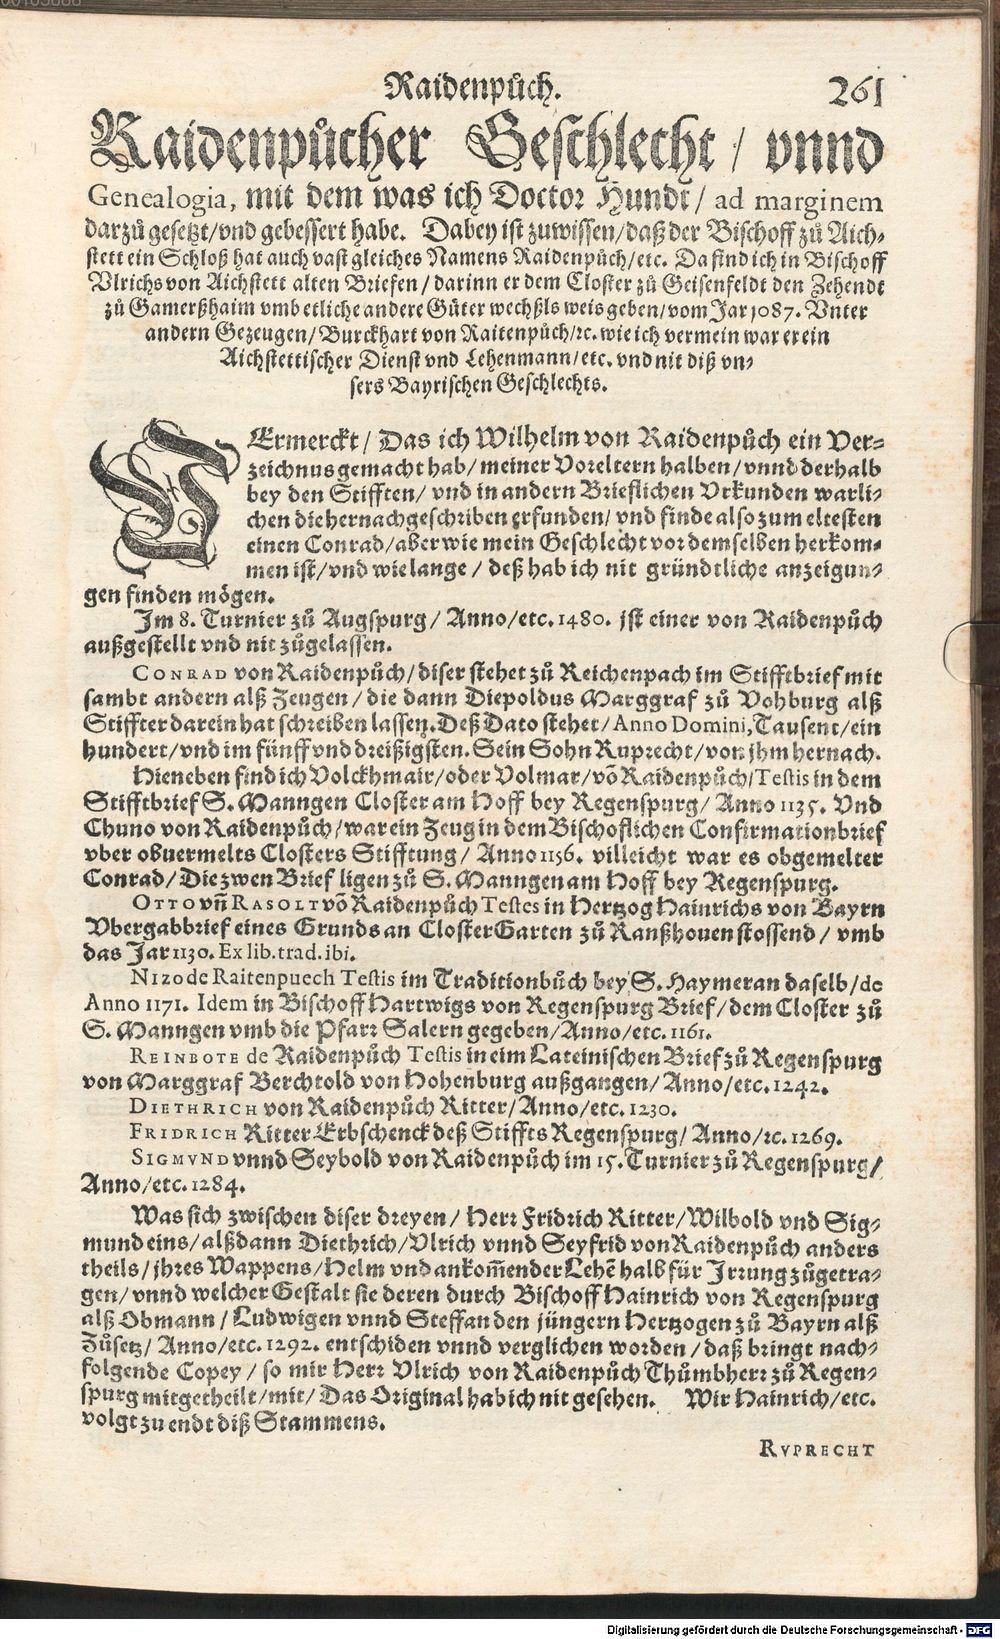 Raidenpůch. 261
Raidenpůcher Geschlecht / vnnd
Genealogia, mit dem was ich Doctor Hundt / ad marginem
darzů gesetzt/vnd gebessert habe. Dabey ist zuwissen/daß der Bischoff zů Aich-
stett ein Schloß hat auch vast gleiches Namens Raidenpůch/etc. Da find ich in Bischoff
Vlrichs von Aichstett alten Briefen / darinn er dem Closter zů Geisenfeldt den Zehendt
zů Gamerßhaim vmb etliche andere Güter wechßls weis geben/vom Jar 1087. Vnter
andern Gezeugen/Burckhart von Raitenpůch/ꝛc. wie ich vermein war er ein
Aichstettischer Dienst vnd Lehenmann/etc. vnd nit diß vn-
sers Bayrischen Geschlechts.
VErmerckt / Das ich Wilhelm von Raidenpůch ein Ver-
zeichnus gemacht hab/meiner Voreltern halben/vnnd derhalb
bey den Stifften/ vnd in andern Brieflichen Vrkunden warli-
chen die hernachgeschriben erfunden/ vnd finde also zum eltesten
einen Conrad/aber wie mein Geschlecht vor demselben herkom-
men ist/vnd wie lange / deß hab ich nit gründtliche anzeigun-
gen finden mögen.
Im 8. Turnier zů Augspurg / Anno/etc. 1480. ist einer von Raidenpůch
außgestellt vnd nit zůgelassen.
CONRAD von Raidenpůch/diser stehet zů Reichenpach im Stifftbrief mit
sambt andern alß Zeugen / die dann Diepoldus Marggraf zů Vohburg alß
Stiffter darein hat schreiben lassen. Deß Dato stehet/Anno Domini, Tausent/ein
hundert/vnd im fünff vnd dreißigsten. Sein Sohn Ruprecht/von jhm hernach.
Hieneben find ich Volckhmair/oder Volmar/võ Raidenpůch/Testis in dem
Stifftbrief S. Manngen Closter am Hoff bey Regenspurg/ Anno 1135. Vnd
Chuno von Raidenpůch/war ein Zeug in dem Bischoflichen Confirmationbrief
vber obuermelts Closters Stifftung / Anno 1156. villeicht war es obgemelter
Conrad/Die zwen Brief ligen zů S. Manngen am Hoff bey Regenspurg.
OTTO vñ RASOLT võ Raidenpůch Testes in Hertzog Hainrichs von Bayrn
Vbergabbrief eines Grunds an Closter Garten zů Ranßhouen stossend / vmb
das Jar 1130. Ex lib. trad. ibi.
NIZO de Raitenpuech Testis im Traditionbůch bey S. Haymeran daselb/de
Anno 1171. Idem in Bischoff Hartwigs von Regenspurg Brief/dem Closter zů
S. Manngen vmb die Pfarr Salern gegeben/Anno/etc. 1161.
REINBOTE de Raidenpůch Testis in eim Lateinischen Brief zů Regenspurg
von Marggraf Berchtold von Hohenburg außgangen/Anno/etc. 1242.
DIETHRICH von Raidenpůch Ritter/Anno/etc. 1230.
FRIDRICH Ritter Erbschenck deß Stiffts Regenspurg/ Anno/ꝛc. 1269.
SIGMVND vnnd Seybold von Raidenpůch im 15. Turnier zů Regenspurg/
Anno/etc. 1284.
Was sich zwischen diser dreyen / Herr Fridrich Ritter/Wilbold vnd Sig-
mund eins / alß dann Diethrich/Vlrich vnnd Seyfrid von Raidenpůch anders
theils / jhres Wappens/Helm vnd ankom̃ender Lehẽ halb für Irrung zůgetra-
gen/ vnnd welcher Gestalt sie deren durch Bischoff Hainrich von Regenspurg
alß Obmann / Ludwigen vnnd Steffan den jüngern Hertzogen zů Bayrn alß
Zůsetz/ Anno/etc. 1292. entschiden vnnd verglichen worden / daß bringt nach-
folgende Copey / so mir Herr Vlrich von Raidenpůch Thůmbherr zů Regen-
spurg mitgetheilt/mit/ Das Original hab ich nit gesehen. Wir Hainrich/etc.
volgt zu endt diß Stammens.
RVPRECHT
Digitalisierung gefördert durch die Deutsche Forschungsgemeinschaft - DFG